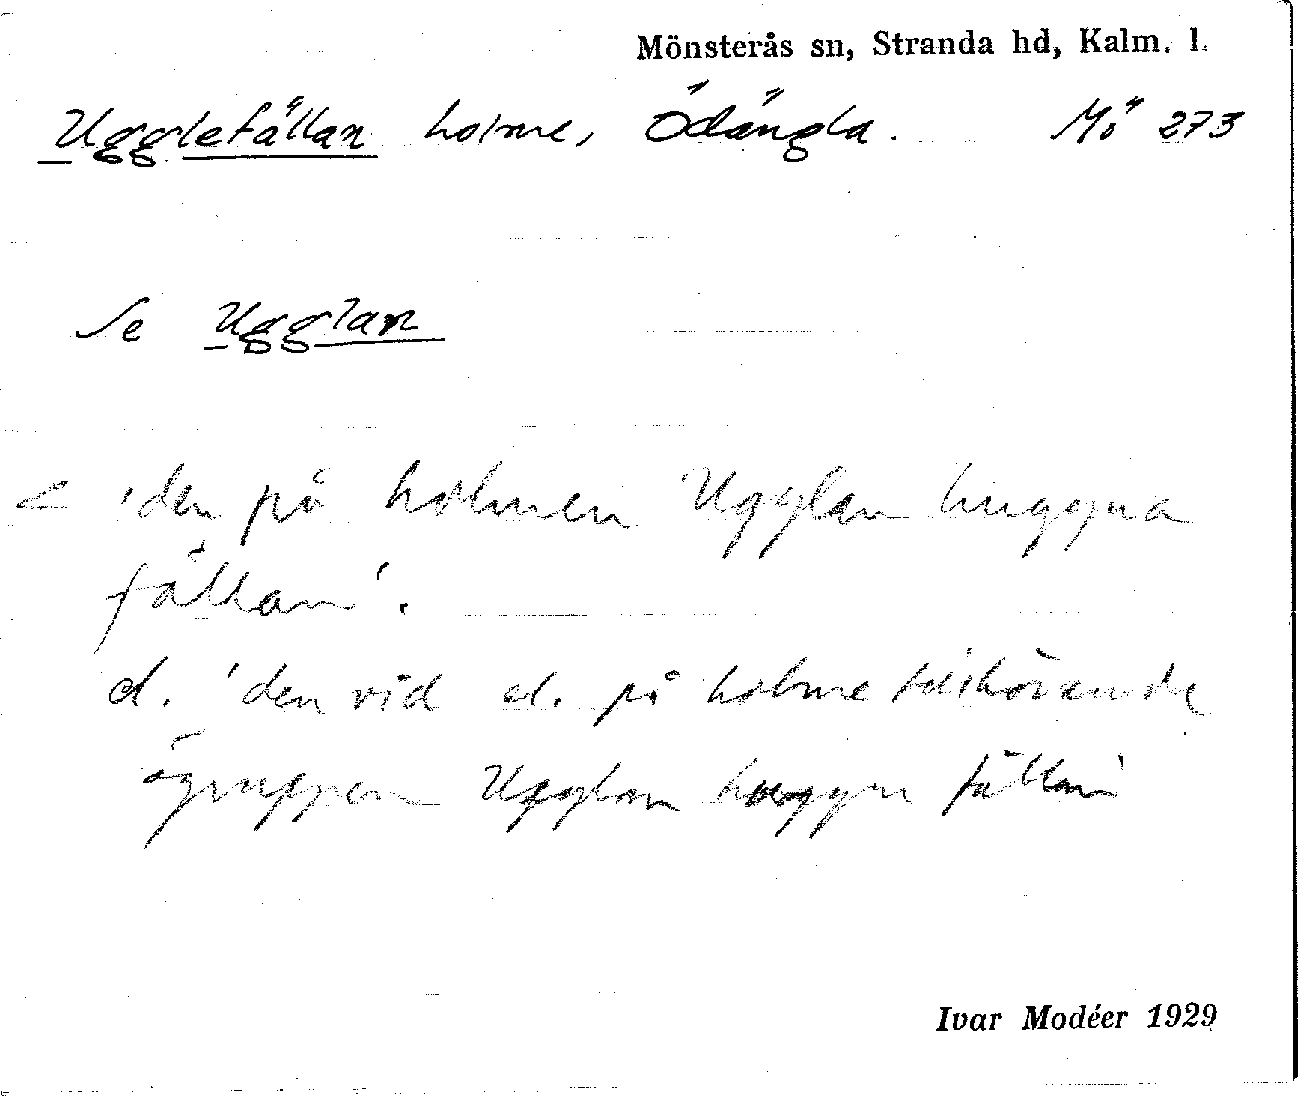 Mönsterås sn, Stranda hd, Kalm. l.
Ugglefällan holme, Ödängla. Mö 273
Se Ugglan
< 'den på holmen Ugglan huggna
fällan'.
el. 'den vid el. på holme tillhörande
ögruppen Ugglan huggna fällan'
Ivar Modéer 1929